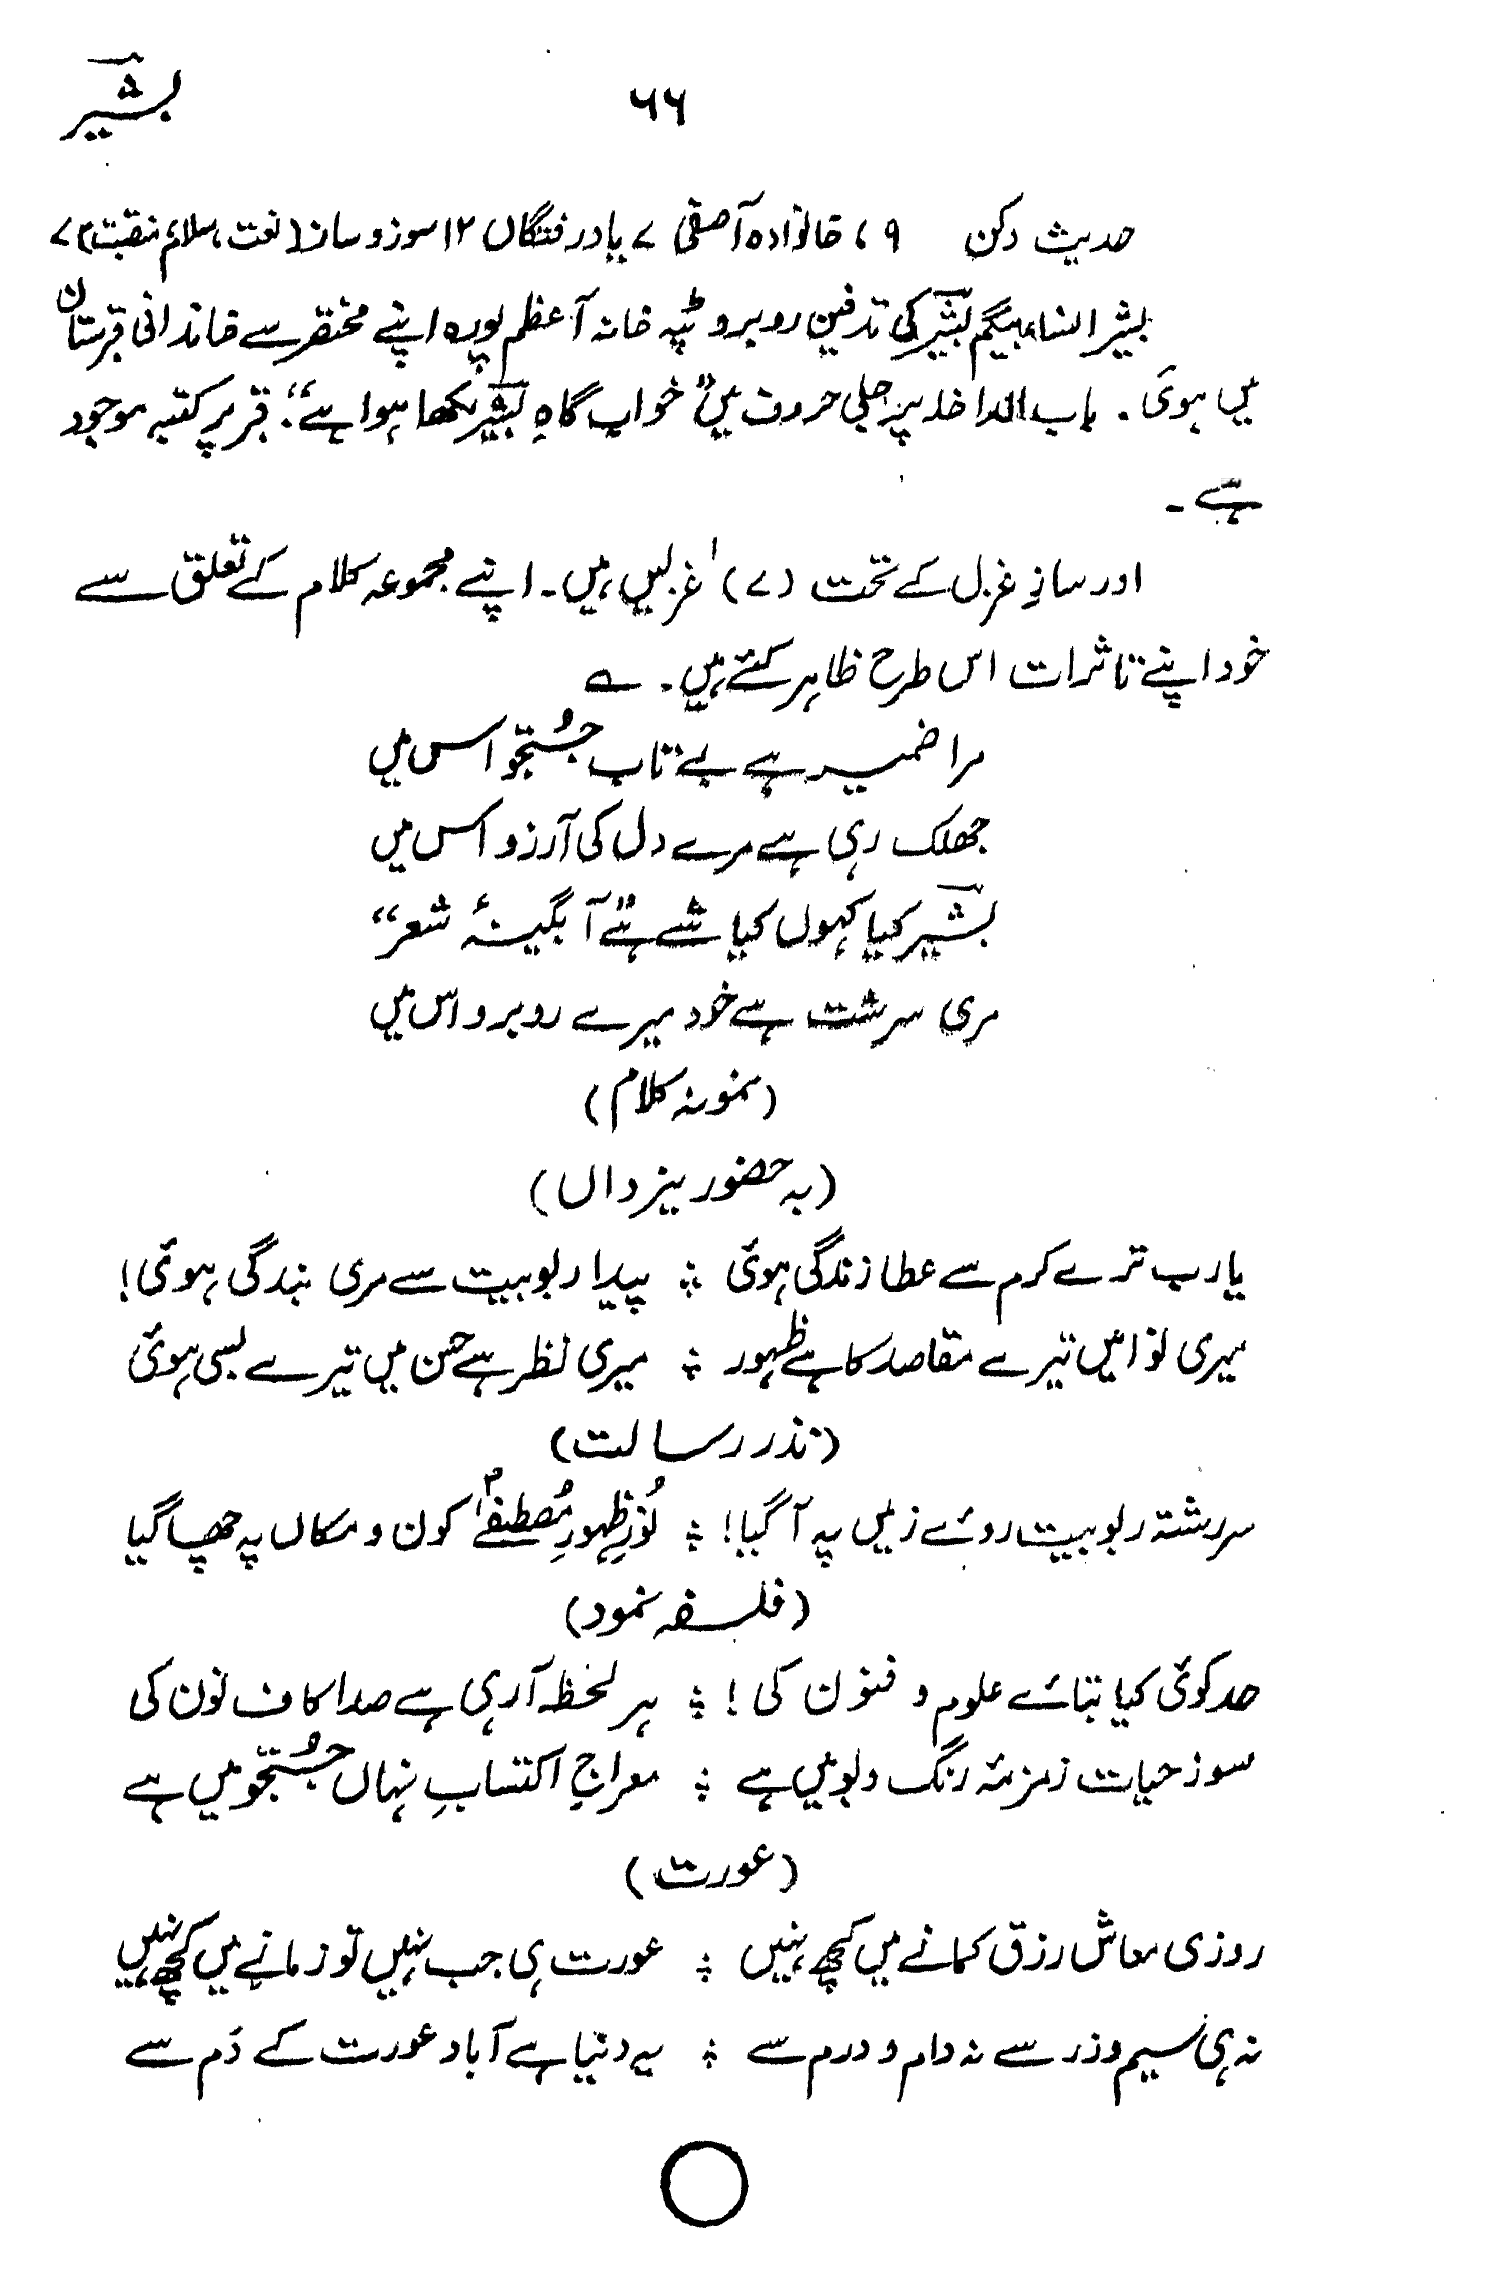 بشیر
۶۶
حدیث دکن ۹ ، خانوادہ آصفی ۷ یاد رفتگاں ۱۲ سوز و ساز (نعت، سلام منقبت) ۷
بشیر النساء بیگم بشیر کی تدفین روبرو ٹپہ خانہ آعظم پورہ اپنے مختصر سے خاندانی قبرستان
میں ہوئی ۔ باب الداخلہ پر جلی حروف میں "خواب گاہِ بشیر لکھا ہوا ہے"؛ قبر پر کتبہ موجود
ہے ۔
اور سازِ غزل کے تحت (۷) غزلیں ہیں ۔ اپنے مجموعہ کلام کے تعلق سے
خود اپنے تاثرات اس طرح ظاہر کئے ہیں ۔ ؎
مرا ضمیر ہے بے تاب جُستجو اس میں
جھلک رہی ہے مرے دل کی آرزو اس میں
بشیر کیا کہوں کیا شے ہے "آبگینۂ شعر"
مری سرشت ہے خود میرے روبرو اس میں
(نمونہ کلام)
(بہ حضور یزداں)
یارب ترے کرم سے عطا زندگی ہوئی ؞ پیدا ربوبیت سے مری بندگی ہوئی!
میری نوا میں تیرے مقاصد کا ہے ظہور ؞ میری نظر ہے حسن میں تیرے بسی ہوئی
(نذر رسالت)
سررشتۂ ربوبیت روئے زمیں پہ آگیا! ؞ نُورِ ظہورِ مُصطفےٰؐ کون و مکاں پہ چھا گیا
(فلسفہ نمود)
حد کوئی کیا بتائے علوم و فنون کی ! ؞ ہر لحظہ آرہی ہے صدا کاف نون کی
سوز حیات زمزمۂ رنگ و بو میں ہے ؞ معراجِ اکتسابِ نہاں جُستجو میں ہے
(عورت)
روزی معاش رزق کمانے میں کچھ نہیں ؞ عورت ہی جب نہیں تو زمانے میں کچھ نہیں
نہ ہی سیم و زر سے نہ دام و درم سے ؞ یہ دنیا ہے آباد عورت کے دَم سے